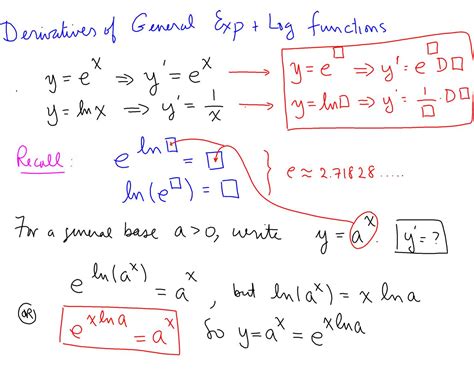 Derivatives of General Exp + Log functions
y = e^x ⇒ y' = e^x → y = e^□ ⇒ y' = e^□ D□
y = ln x ⇒ y' = 1/x → y = ln□ ⇒ y' = 1/□ · D□
Recall: e^(ln□) = □
ln(e^□) = □ } e ≈ 2.71828.....
For a general base a>0, write y = a^x. y' = ?
e^(ln(a^x)) = a^x, but ln(a^x) = x ln a
OR e^(x ln a) = a^x So y = a^x = e^(x ln a)